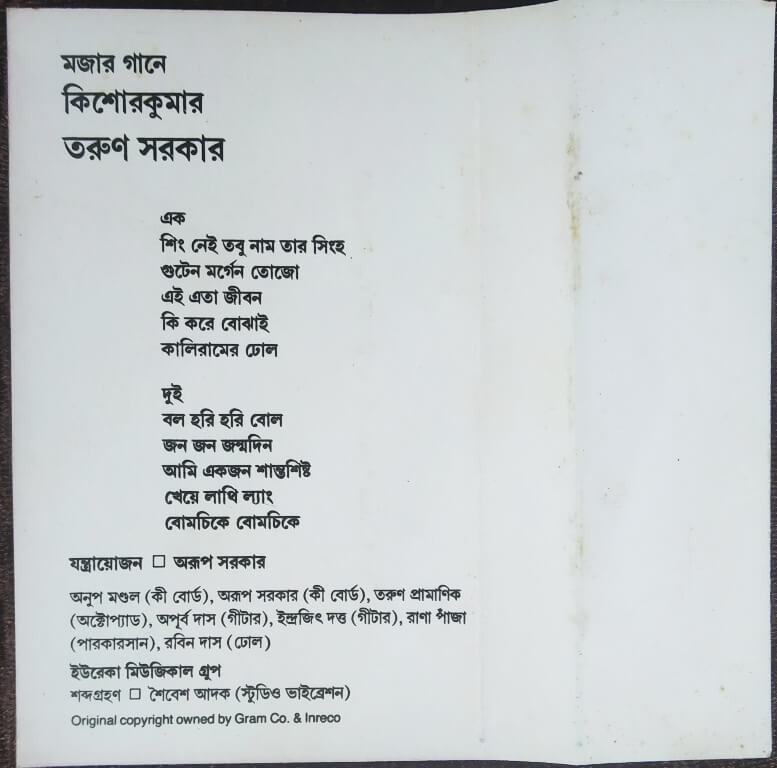 মজার গানে
কিশোরকুমার
তরুণ সরকার
এক
শিং নেই তবু নাম তার সিংহ
গুটেন মর্গেন তোজো
এই এতা জীবন
কি করে বোঝাই
কালিরামের ঢোল
দুই
বল হরি হরি বোল
জন জন জন্মদিন
আমি একজন শান্তশিষ্ট
খেয়ে লাথি ল্যাং
বোমচিকে বোমচিকে
যন্ত্রায়োজন □ অরূপ সরকার
অনুপ মণ্ডল (কী বোর্ড), অরূপ সরকার (কী বোর্ড), তরুণ প্রামাণিক
(অক্টোপ্যাড), অপূর্ব দাস (গীটার), ইন্দ্রজিৎ দত্ত (গীটার), রাণা পাঁজা
(পারকারসান), রবিন দাস (ঢোল)
ইউরেকা মিউজিকাল গ্রুপ
শব্দগ্রহণ □ শৈবেশ আদক (স্টুডিও ভাইব্রেশন)
Original copyright owned by Gram Co. & Inreco